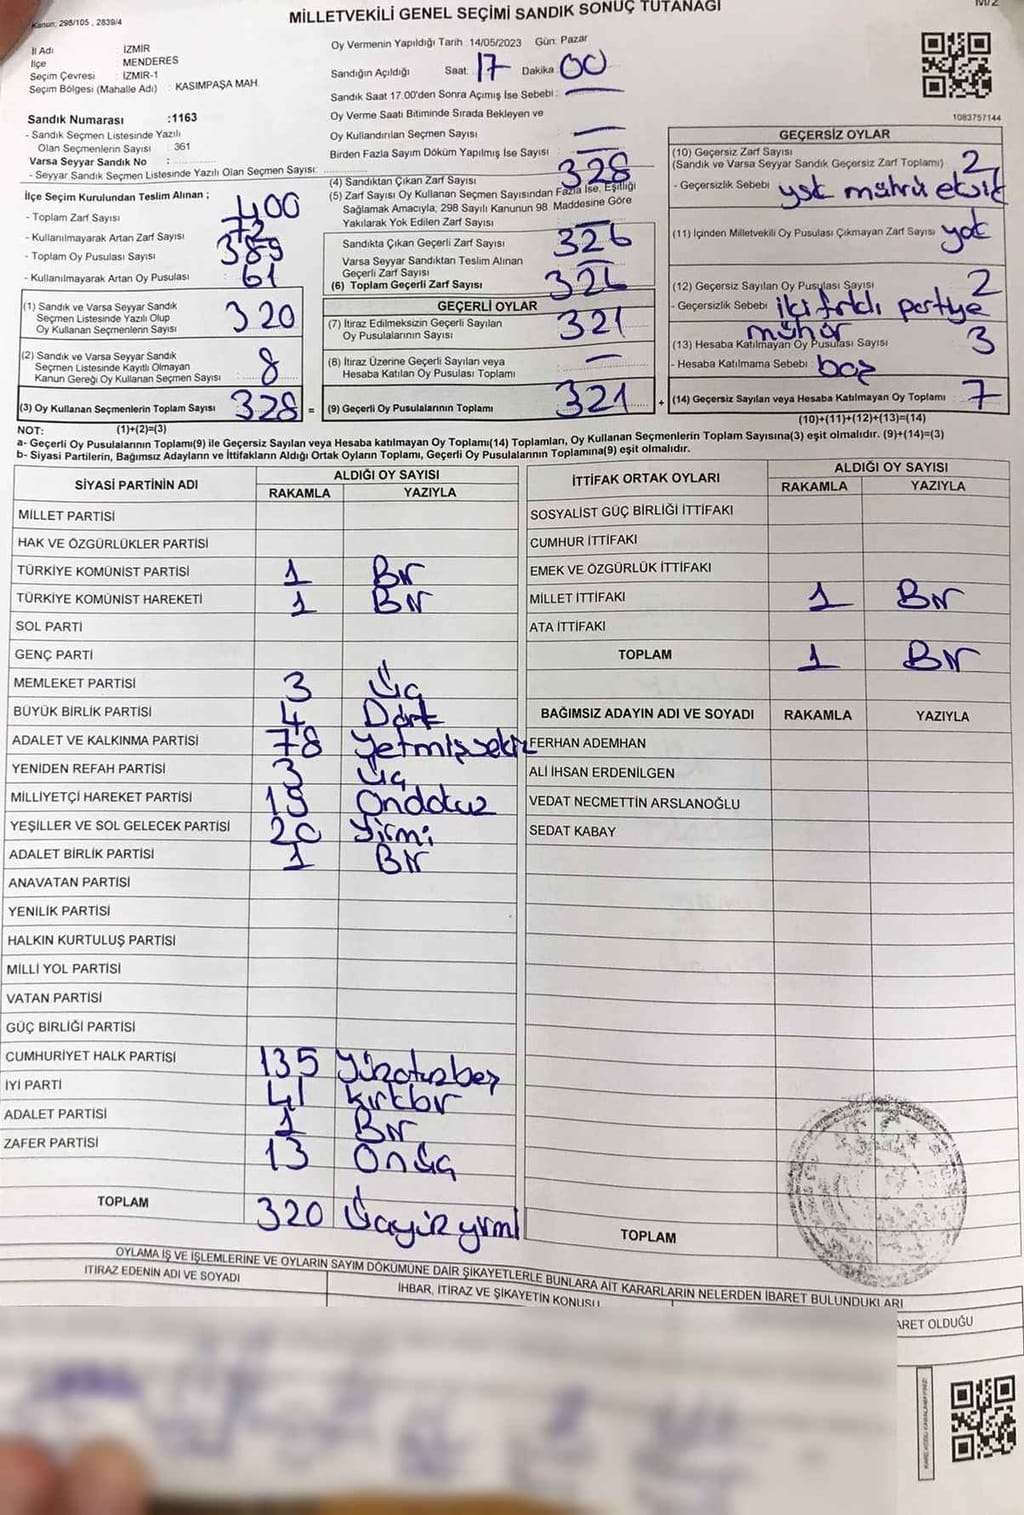 Kanun; 298/105 , 2839/4
MİLLETVEKİLİ GENEL SEÇİMİ SANDIK SONUÇ TUTANAĞI
İl Adı : İZMİR
İlçe MENDERES
Seçim Çevresi : İZMİR-1
Seçim Bölgesi (Mahalle Adı) : KASIMPAŞA MAH.
Sandık Numarası :1163
- Sandık Seçmen Listesinde Yazılı
Olan Seçmenlerin Sayısı : 361
Varsa Seyyar Sandık No :
- Seyyar Sandık Seçmen Listesinde Yazılı Olan Seçmen Sayısı:
Oy Vermenin Yapıldığı Tarih :14/05/2023 Gün: Pazar
Sandığın Açıldığı Saat 17 Dakika 00
Sandık Saat 17.00'den Sonra Açımış İse Sebebi : —
Oy Verme Saati Bitiminde Sırada Bekleyen ve
Oy Kullandırılan Seçmen Sayısı —
Birden Fazla Sayım Döküm Yapılmış İse Sayısı —
1083757144
İlçe Seçim Kurulundan Teslim Alınan ;
- Toplam Zarf Sayısı 400
- Kullanılmayarak Artan Zarf Sayısı 72
- Toplam Oy Pusulası Sayısı 389
- Kullanılmayarak Artan Oy Pusulası : 61
(1) Sandık ve Varsa Seyyar Sandık
Seçmen Listesinde Yazılı Olup
Oy Kullanan Seçmenlerin Sayısı 320
(2) Sandık ve Varsa Seyyar Sandık
Seçmen Listesinde Kayıtlı Olmayan
Kanun Gereği Oy Kullanan Seçmen Sayısı 8
(3) Oy Kullanan Seçmenlerin Toplam Sayısı 328 =
(4) Sandıktan Çıkan Zarf Sayısı 328
(5) Zarf Sayısı Oy Kullanan Seçmen Sayısından Fazla İse, Eşitliği
Sağlamak Amacıyla, 298 Sayılı Kanunun 98. Maddesine Göre
Yakılarak Yok Edilen Zarf Sayısı —
Sandıkta Çıkan Geçerli Zarf Sayısı 326
Varsa Seyyar Sandıktan Teslim Alınan
Geçerli Zarf Sayısı —
(6) Toplam Geçerli Zarf Sayısı 326
GEÇERLİ OYLAR
(7) İtiraz Edilmeksizin Geçerli Sayılan
Oy Pusulalarının Sayısı 321
(8) İtiraz Üzerine Geçerli Sayılan veya
Hesaba Katılan Oy Pusulası Toplamı —
(9) Geçerli Oy Pusulalarının Toplamı 321 +
GEÇERSİZ OYLAR
(10) Geçersiz Zarf Sayısı
(Sandık ve Varsa Seyyar Sandık Geçersiz Zarf Toplamı) 2
- Geçersizlik Sebebi ysk mührü eksik
(11) İçinden Milletvekili Oy Pusulası Çıkmayan Zarf Sayısı yok
(12) Geçersiz Sayılan Oy Pusulası Sayısı 2
- Geçersizlik Sebebi iki farklı partiye
mühür
(13) Hesaba Katılmayan Oy Pusulası Sayısı 3
- Hesaba Katılmama Sebebi boş
(14) Geçersiz Sayılan veya Hesaba Katılmayan Oy Toplamı 7
(1)+(2)=(3)
(10)+(11)+(12)+(13)=(14)
NOT:
a- Geçerli Oy Pusulalarının Toplamı(9) ile Geçersiz Sayılan veya Hesaba katılmayan Oy Toplamı(14) Toplamları, Oy Kullanan Seçmenlerin Toplam Sayısına(3) eşit olmalıdır. (9)+(14)=(3)
b- Siyasi Partilerin, Bağımsız Adayların ve İttifakların Aldığı Ortak Oyların Toplamı, Geçerli Oy Pusulalarının Toplamına(9) eşit olmalıdır.
SİYASİ PARTİNİN ADI ALDIĞI OY SAYISI
RAKAMLA YAZIYLA
MİLLET PARTİSİ
HAK VE ÖZGÜRLÜKLER PARTİSİ
TÜRKİYE KOMÜNİST PARTİSİ 1 Bir
TÜRKİYE KOMÜNİST HAREKETİ 1 Bir
SOL PARTİ
GENÇ PARTİ
MEMLEKET PARTİSİ 3 Üç
BÜYÜK BİRLİK PARTİSİ 4 Dört
ADALET VE KALKINMA PARTİSİ 78 Yetmişsekiz
YENİDEN REFAH PARTİSİ 3 Üç
MİLLİYETÇİ HAREKET PARTİSİ 19 Ondokuz
YEŞİLLER VE SOL GELECEK PARTİSİ 20 Yirmi
ADALET BİRLİK PARTİSİ 1 Bir
ANAVATAN PARTİSİ
YENİLİK PARTİSİ
HALKIN KURTULUŞ PARTİSİ
MİLLİ YOL PARTİSİ
VATAN PARTİSİ
GÜÇ BİRLİĞİ PARTİSİ
CUMHURİYET HALK PARTİSİ 135 Yüzotuzbeş
İYİ PARTİ 41 Kırkbir
ADALET PARTİSİ 1 Bir
ZAFER PARTİSİ 13 Onüç
TOPLAM 320 Üçyüzyirmi
İTTİFAK ORTAK OYLARI ALDIĞI OY SAYISI
RAKAMLA YAZIYLA
SOSYALİST GÜÇ BİRLİĞİ İTTİFAKI
CUMHUR İTTİFAKI
EMEK VE ÖZGÜRLÜK İTTİFAKI
MİLLET İTTİFAKI 1 Bir
ATA İTTİFAKI
TOPLAM 1 Bir
BAĞIMSIZ ADAYIN ADI VE SOYADI RAKAMLA YAZIYLA
FERHAN ADEMHAN
ALİ İHSAN ERDENİLGEN
VEDAT NECMETTİN ARSLANOĞLU
SEDAT KABAY
TOPLAM
OYLAMA İŞ VE İŞLEMLERİNE VE OYLARIN SAYIM DÖKÜMÜNE DAİR ŞİKAYETLERLE BUNLARA AİT KARARLARIN NELERDEN İBARET BULUNDUKLARI
İTİRAZ EDENİN ADI VE SOYADI
İHBAR, İTİRAZ VE ŞİKAYETİN KONUSU
ARET OLDUĞU